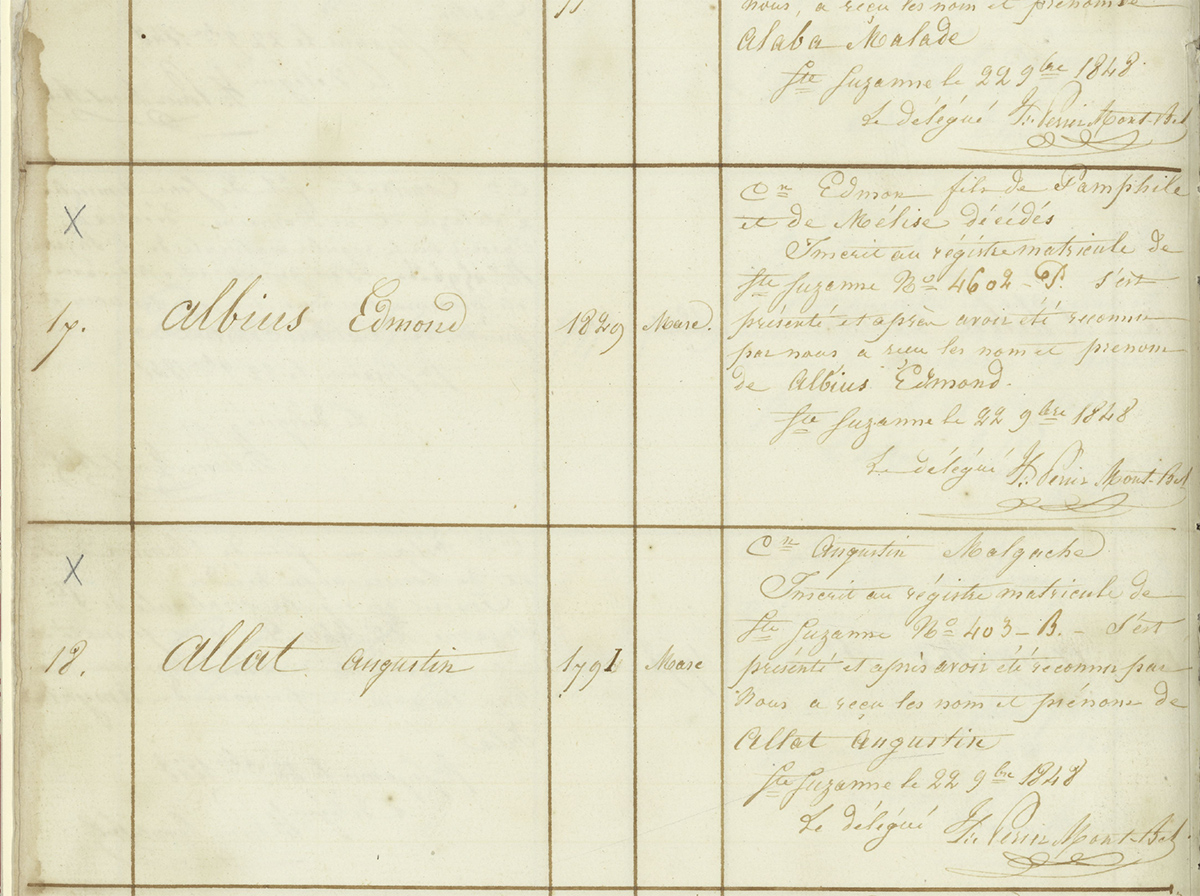 17
nous, a reçu les nom et prénom de
Alaba Malade
Ste Suzanne le 22 9bre 1848
Le délégué
X
17.
Albius Edmond
1829
Masc.
Cn Edmon fils de Pamphile
et de Mélise décédés
Inscrit au régistre matricule de
Ste Suzanne No 4602 - P. s'est
présenté et après avoir été reconnu
par nous a reçu les nom et prenom
de Albius Edmond.
Ste Suzanne le 22 9bre 1848
Le délégué
X
18.
Allat Augustin
1791
Masc
Cn Augustin Malgache
Inscrit au régistre matricule de
Ste Suzanne No 403 - B. - s'est
présenté et après avoir été reconnu par
Nous a reçu les nom et prénom de
Allat Augustin
Ste Suzanne le 22 9bre 1848
Le délégué